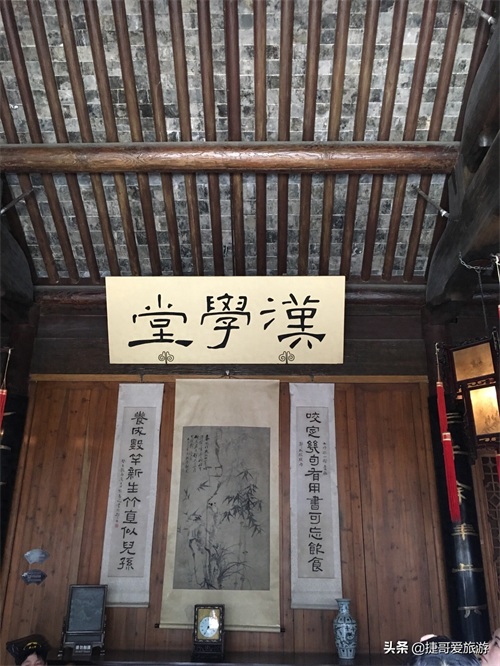 漢學堂
咬定幾句有用書可忘飲食
養成數竿新生竹直似兒孫
头条 @捷哥爱旅游